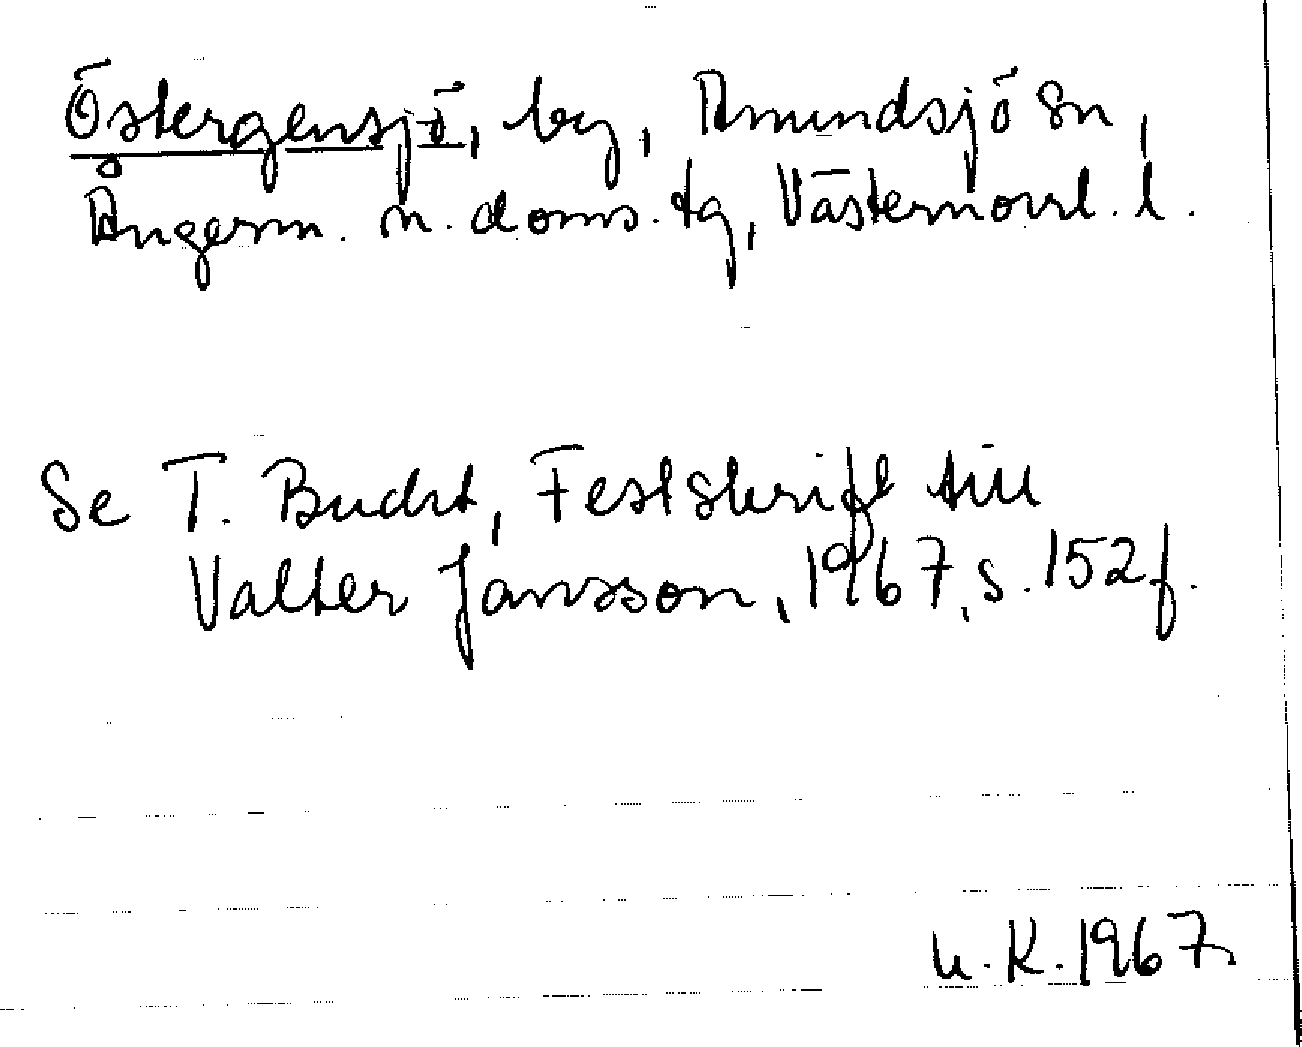 Östergensjö, by, Anundsjö sn,
Ångerm. n. doms. tg, Västernorrl. l.
Se T. Bucht, Festskrift till
Valter Jansson, 1967, s. 152f.
U.K. 1967